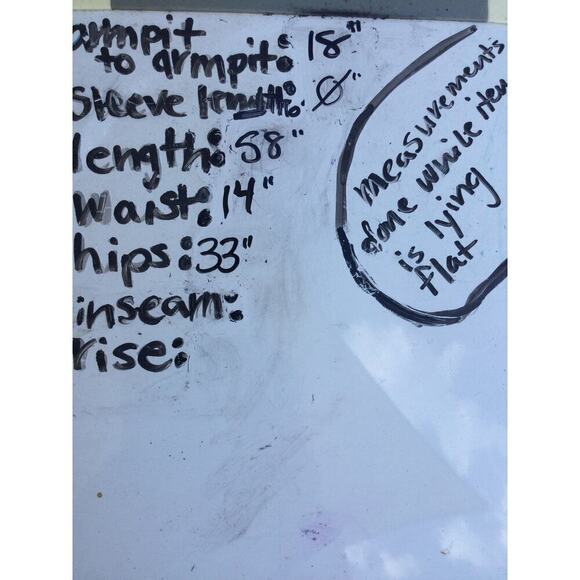 armpit
to armpit: 18"
Sleeve length: Ø"
length: 58"
waist: 14"
hips: 33"
inseam:
rise:
measurements
done while item
is lying
flat